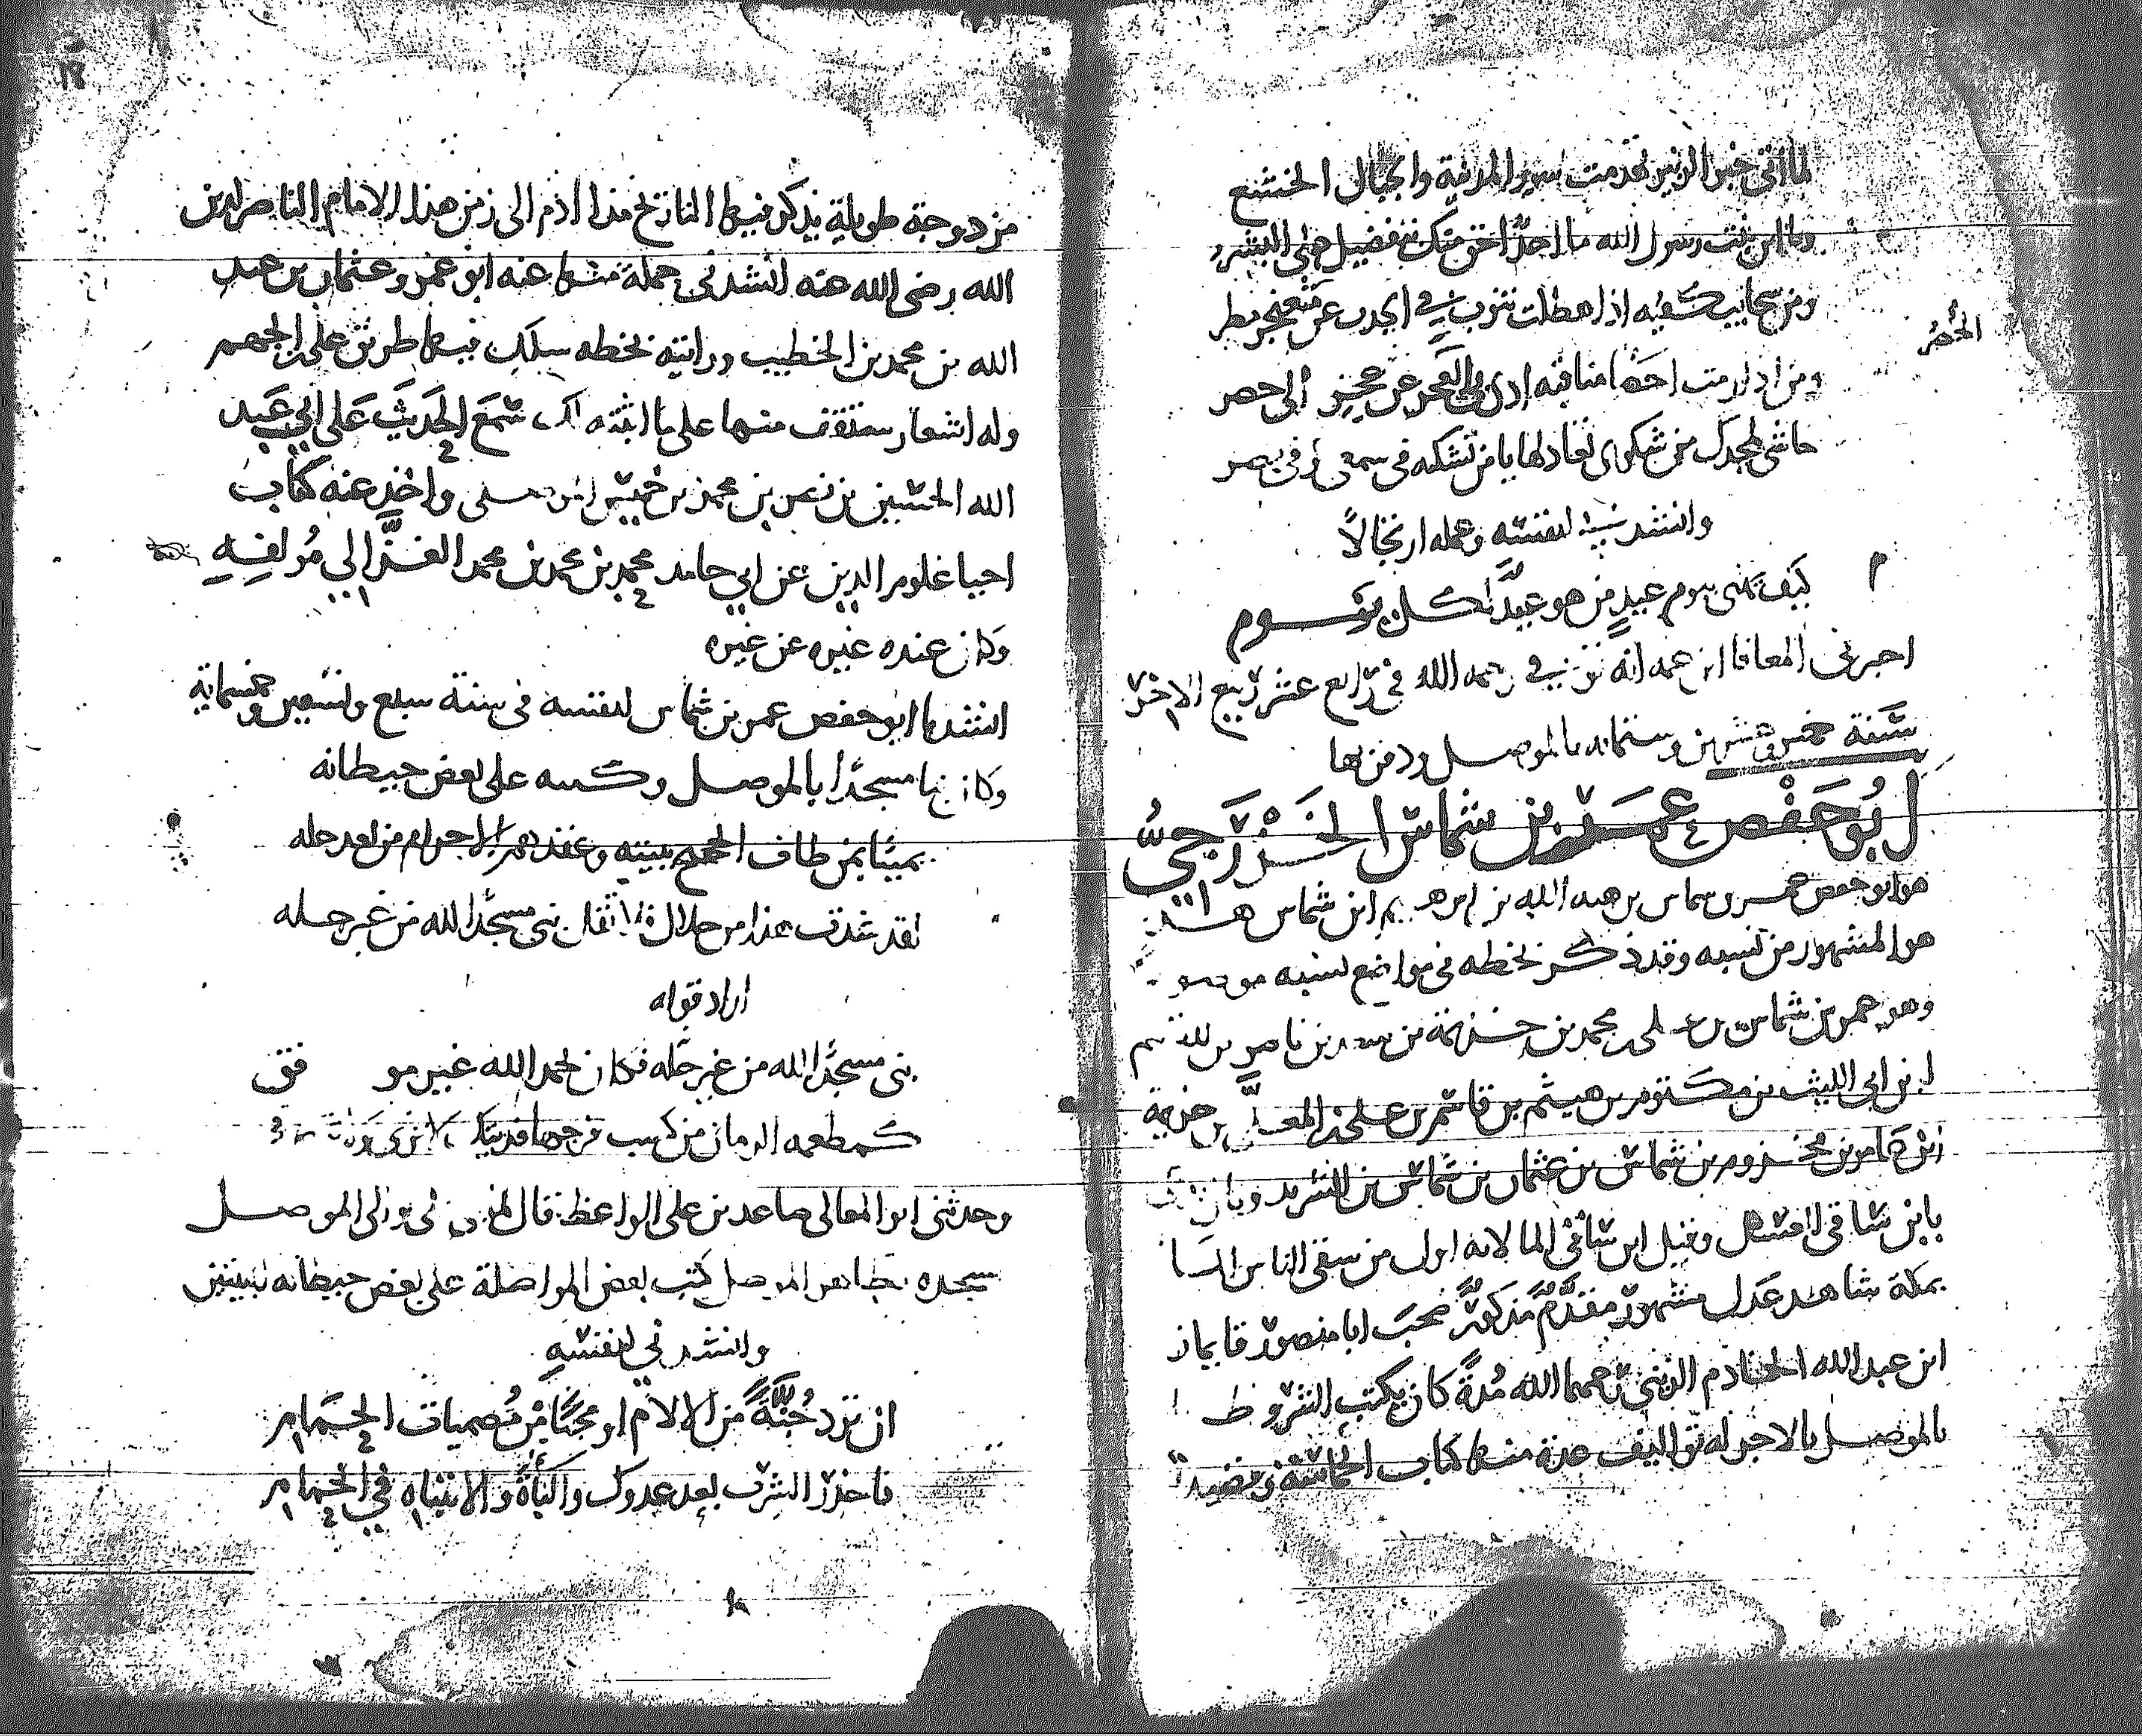 لما اتى خبر الزبير تهدمت سور المدينة والجبال الخشع
وانت رسول الله ما احدٌ احق منك بتفضيل على البشر
ومن سحاييب كفيه اذا هطلت تنوب في الجدب عن مثعنجر مطر
الحُصُر
ومن اذا رمت احصا مناقبه ادى بي العجز عن عجز الى حصر
حاشى لمجدك من شكوى تعاد لها يا من تشكيه في سمعى وفي بصر
وانشدنيه لنفسه وعمله ارتجالاً
م
كيف تهنى بيوم عيدٍ من هو عيدٌ لكل يوم
اخبرنى المعافا ابن عمه انه توفي رحمه الله في رابع عشر ربيع الاخر
سنة خمس وعشرين وستمائه بالموصل ودفن بها
ابو حفص عمر بن شماس الخزرجي
هو ابو حفص عمر بن شماس بن هبه الله بن ابرهيم ابن شماس هذا
هو المشهور من نسبه وقد ذكر بخطه في مواضع نسبه
وهو عمر بن شماس بن على بن محمد بن خزيمة بن بن ناصر بن القسم
ابن ابي الليث بن مكتوم بن هيثم بن قاسم بن على بن المعلى بن خزيمة
ابن حامد بن مخزوم بن شماس بن عثمان بن شماس بن الشريد
بابن ساقي العسل وقيل ابن ساقي الما لانه اول من سقى الناس الما
بمكة شاهد عدل مشهور مقدم مذكور صحب ابا منصور قايماز
ابن عبد الله الخادم الزينى رحمهما الله مدةً كان يكتب الشروط
بالموصل بالاجر له تواليف عدة منها كتاب الحماسة وقصيدة
مزدوجة طويلة يذكر فيها التاريخ منذ ادم الى زمن هذا الامام الناصر لدين
الله رضى الله عنه انشدنى جملة منها عنه ابو عمرو عثمان بن عبد
الله بن محمد بن الخطيب ورايته بخطه سلك فيها طريق على بن الجهم
وله اشعار ستقف منها على ما اثبته لك سمع الحديث على ابي عبد
الله الحسين بن نصر بن محمد بن خميس الموصلى واخذ عنه كتاب
احيا علوم الدين عن ابي حامد محمد بن محمد بن محمد الغزّالي مُولفِهِ
وكان عنده غيره عن غيره
انشدنا ابو حفص عمر بن شماس لنفسه في سنة سبع وتسعين وخمسماية
وكان بنا مسجدًا بالموصل وكتبه على بعض حيطانه
يمينًا بمن طاف الحجيج ببيته وعقدهم الاحرام من بعد حله
لقد شدت هذا من حلال فلا تقل بنى مسجدًا لله من غير حله
اراد قوله
بنى مسجدًا لله من غير حله فكان بحمد الله غير موفق
كمطعمه الرمان من كسب فرجها
وحدثني ابو المعالى صاعد بن على الواعظ قال لما بنى والى الموصل
مسجده بظاهر الموصل كتب بعض المواصلة على بعض حيطانه بيتين
وانشدني لنفسه
ان ترد جُنّةً من الالام او مجنًّا من مُصميات الحِمام
فاحذر الشرب بعد عدوك والباةَ والانتباه في الحمام